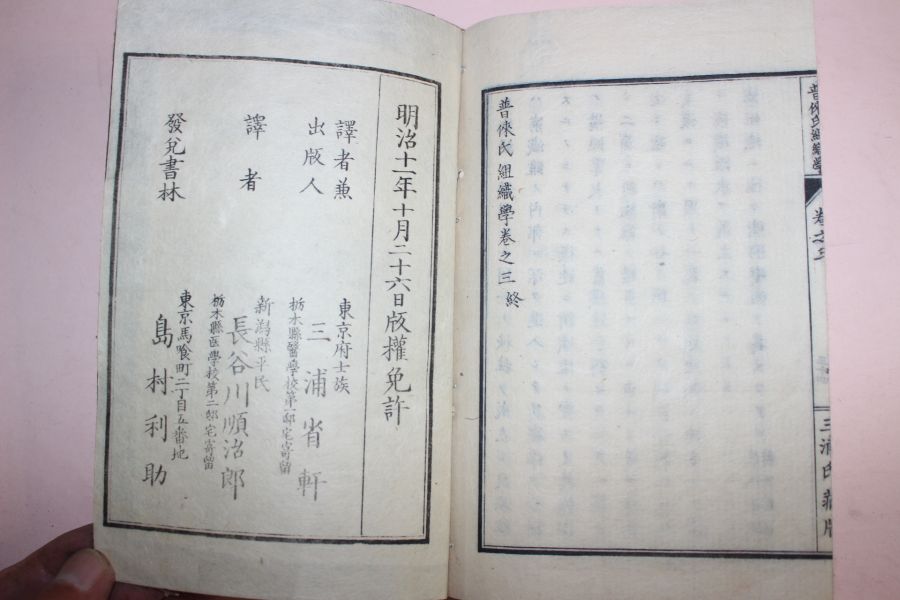 普倈氏組織學
卷之三
三浦氏藏版
普倈氏組織學卷之三終
明治十一年十月二十六日版權免許
譯者兼
出版人
東京府士族
栃木縣醫學校第一邸宅寄留
三浦省軒
譯者
新潟縣平民
栃木縣医學校第二邸宅寄留
長谷川順治郎
發兌書林
東京馬喰町二丁目五番地
島村利助